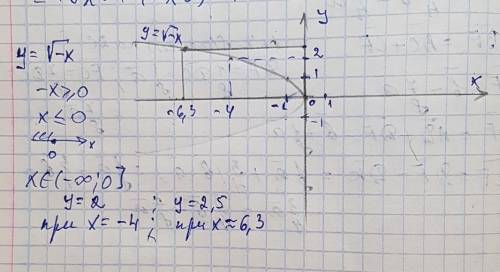 y=√-x
-x⩾0
x≤0
0 x
x∈(-∞;0]
y=2 ; y=2,5
при x=-4 ; при x≈6,3
y=√-x
y
2
1
x
-6,3 -4 -1 0 1
-1